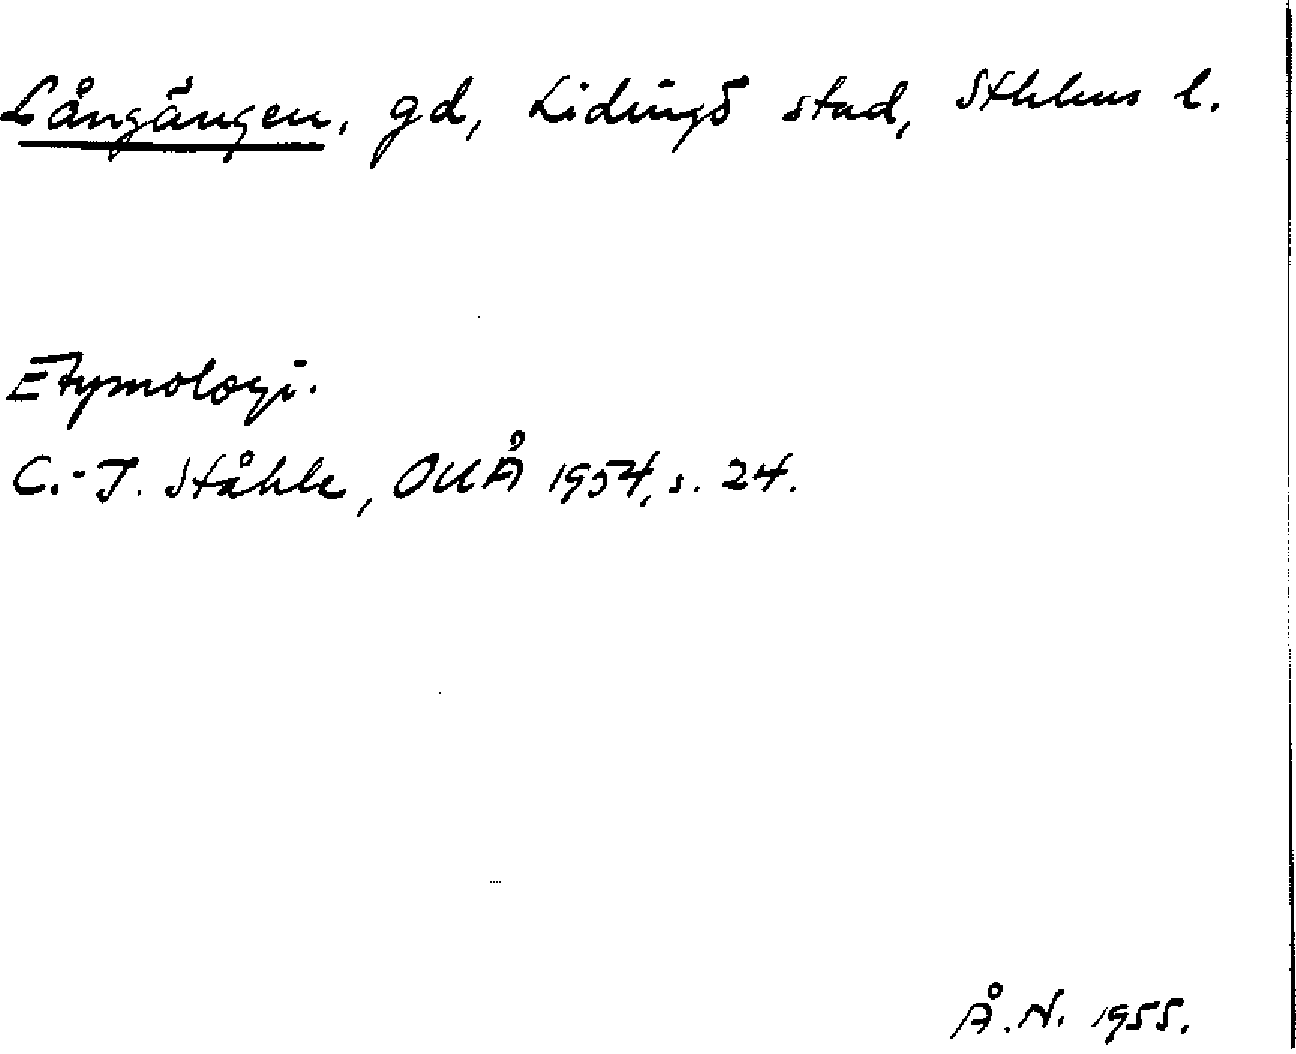 Långängen, gd, Lidingö stad, Sthlms l.
Etymologi.
C.-I. Ståhle, OUÅ 1954, s. 24.
Å.N. 1955.